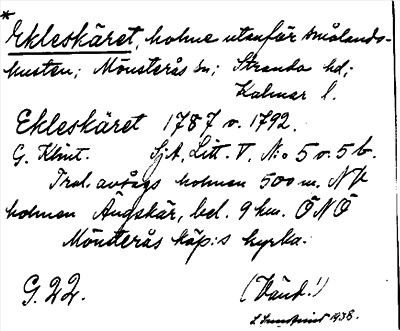 *
Ekleskäret, holme utanför Smålands-
kusten; Mönsterås sn; Stranda hd;
Kalmar l.
Ekleskäret 1787 o. 1792.
G. Klint. SjA, Litt. V, N:o 5 o. 5 b.
Trol. avsågs holmen 500 m. NV
holmen Ängskär, bel. 9 km. ÖNÖ
Mönsterås köp:s kyrka.
G. 22. (Vänd!)
1938.